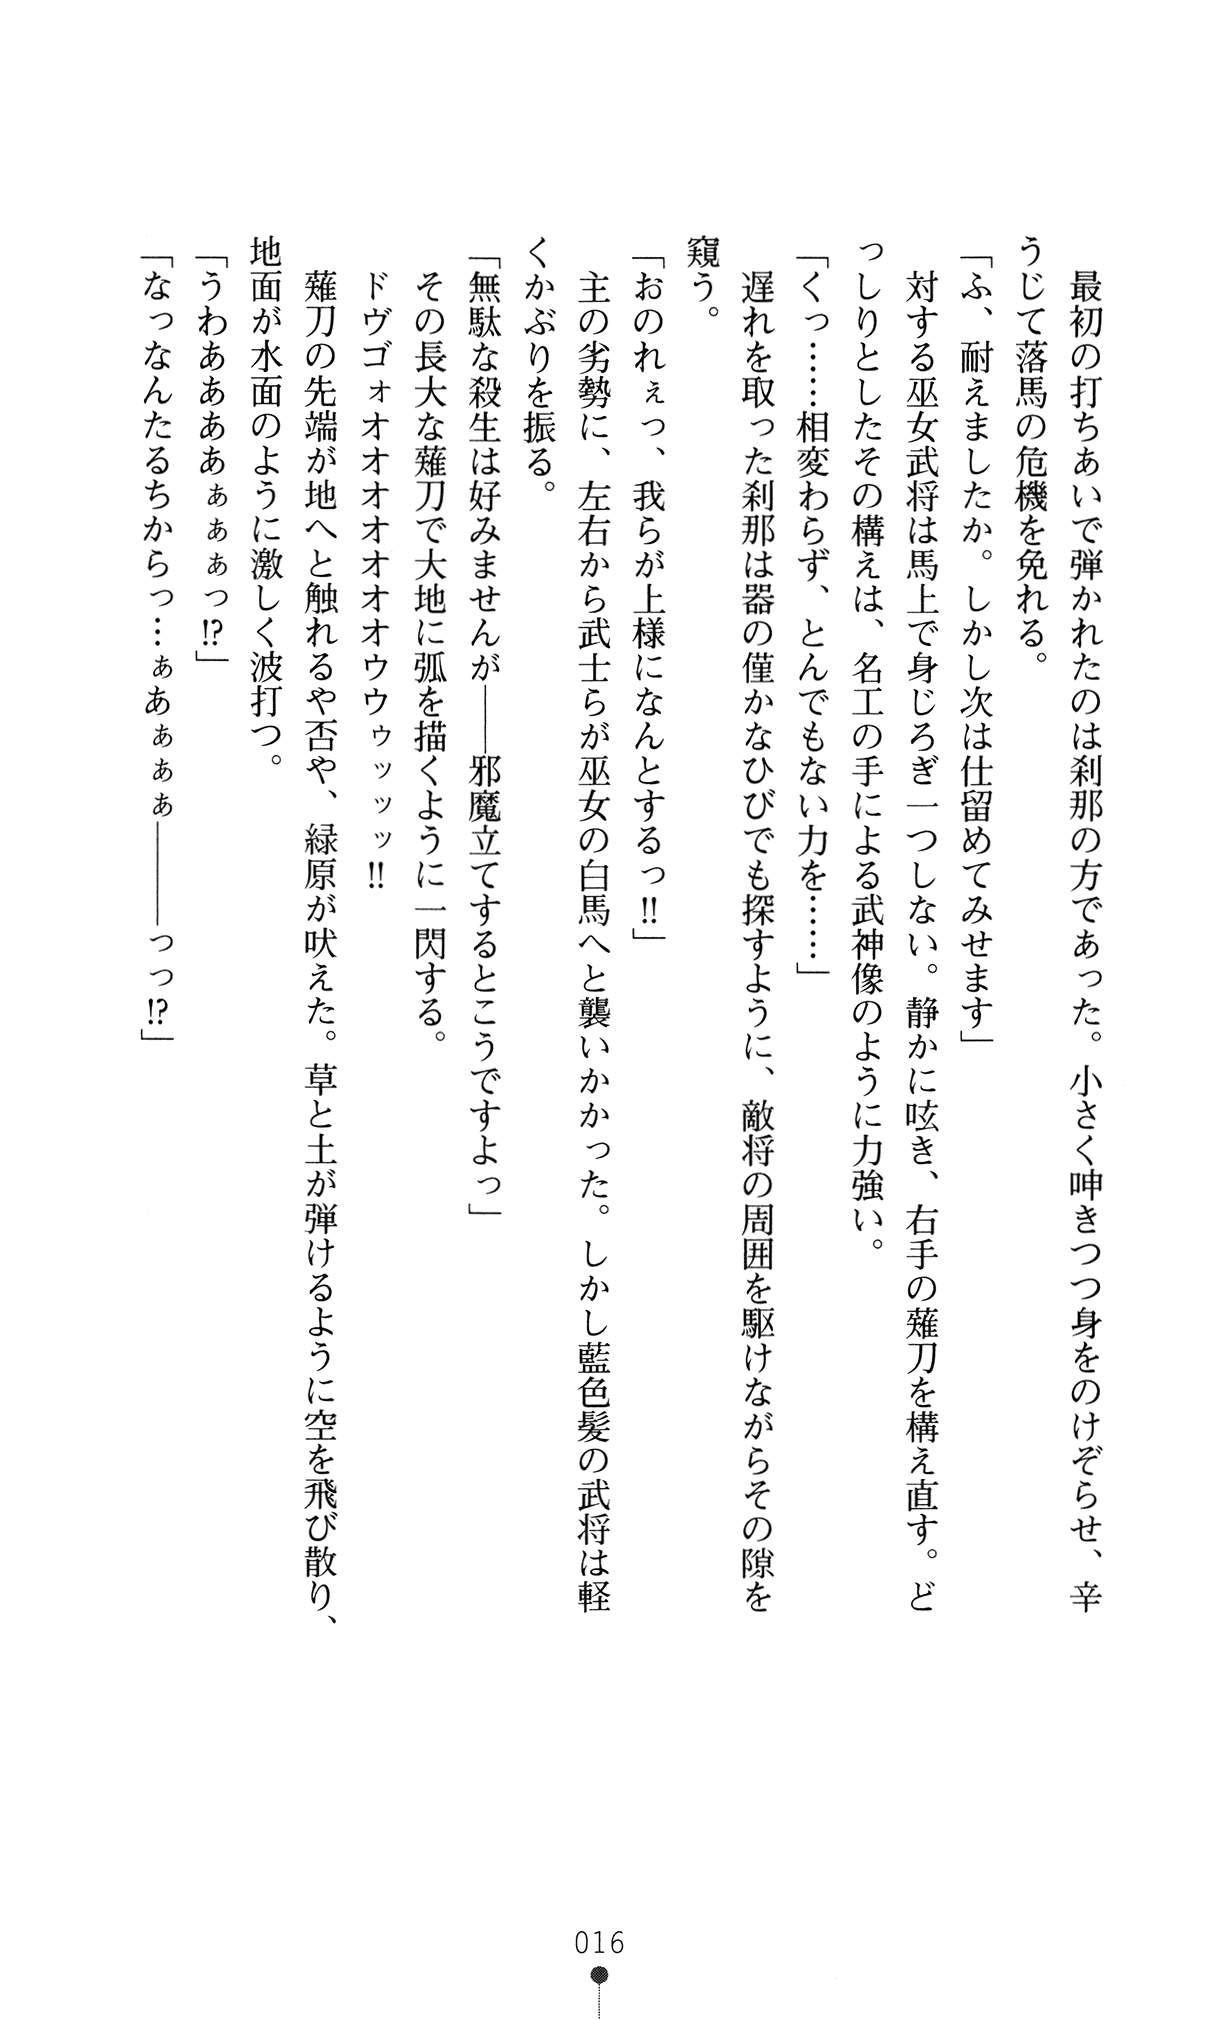 最初の打ちあいで弾かれたのは刹那の方であった。小さく呻きつつ身をのけぞらせ、辛
うじて落馬の危機を免れる。
「ふ、耐えましたか。しかし次は仕留めてみせます」
　対する巫女武将は馬上で身じろぎ一つしない。静かに呟き、右手の薙刀を構え直す。ど
っしりとしたその構えは、名工の手による武神像のように力強い。
「くっ……相変わらず、とんでもない力を……」
　遅れを取った刹那は器の僅かなひびでも探すように、敵将の周囲を駆けながらその隙を
窺う。
「おのれぇっ、我らが上様になんとするっ!!」
　主の劣勢に、左右から武士らが巫女の白馬へと襲いかかった。しかし藍色髪の武将は軽
くかぶりを振る。
「無駄な殺生は好みませんが――邪魔立てするとこうですよっ」
　その長大な薙刀で大地に弧を描くように一閃する。
　ドヴゴォオオオオオオオウウゥッッッ!!
　薙刀の先端が地へと触れるや否や、緑原が吠えた。草と土が弾けるように空を飛び散り、
地面が水面のように激しく波打つ。
「うわああああぁぁぁっ!?」
「なっなんたるちからっ…ぁあぁぁぁ―――っっ!?」
016